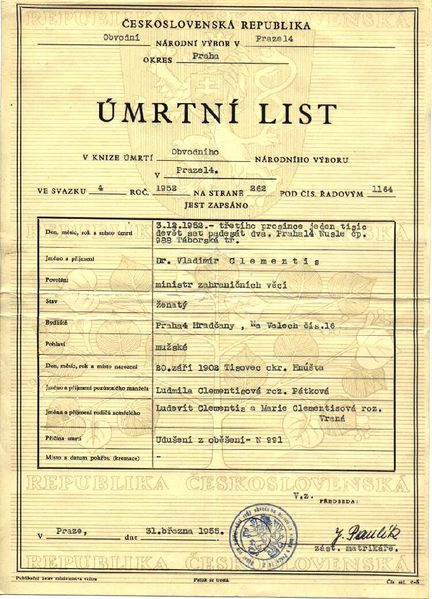 ČESKOSLOVENSKÁ REPUBLIKA
Obvodní NÁRODNÍ VÝBOR V Praze14
OKRES Praha
ÚMRTNÍ LIST
V KNIZE ÚMRTÍ Obvodního NÁRODNÍHO VÝBORU
V Praze14.
VE SVAZKU 4 ROČ. 1952 NA STRANĚ 262 POD ČÍS. ŘADOVÝM 1164
JEST ZAPSÁNO
Den, měsíc, rok a místo úmrtí
3.12.1952.- třetího prosince jeden tisíc
devět set padesát dva. Praha14 Nusle čp.
988 Táborská tř.
Jméno a příjmení Dr. Vladimír Clementis
Povolání ministr zahraničních věcí
Stav ženatý
Bydliště Praha4 Hradčany , Na Valech čís.16
Pohlaví mužské
Den, měsíc, rok a místo narození 20.září 1902 Tisovec okr. Hnúšta
Jméno a příjmení pozůstalého manžela Ludmila Clementisová roz. Pátková
Jméno a příjmení rodičů zemřelého Ludevít Clementis a Marie Clementisová roz.
Vraná
Příčina smrti Udušení z oběšení- N 991
Místo a datum pohřbu (kremace) -
REPUBLIKA ČESKOSLOVENSKÁ
V.z. PŘEDSEDA:
V Praze, dne 31.března 1955.
J. Paulík
zást. matrikáře.